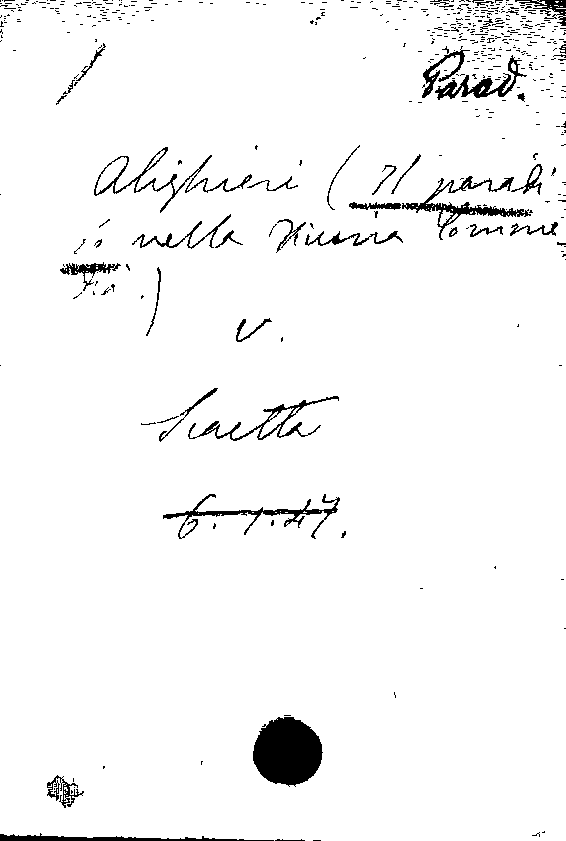 Parad.
Alighieri (Il paradi
so nella Divina Comme
dia.)
v.
Scaetta
6. 1. 47.